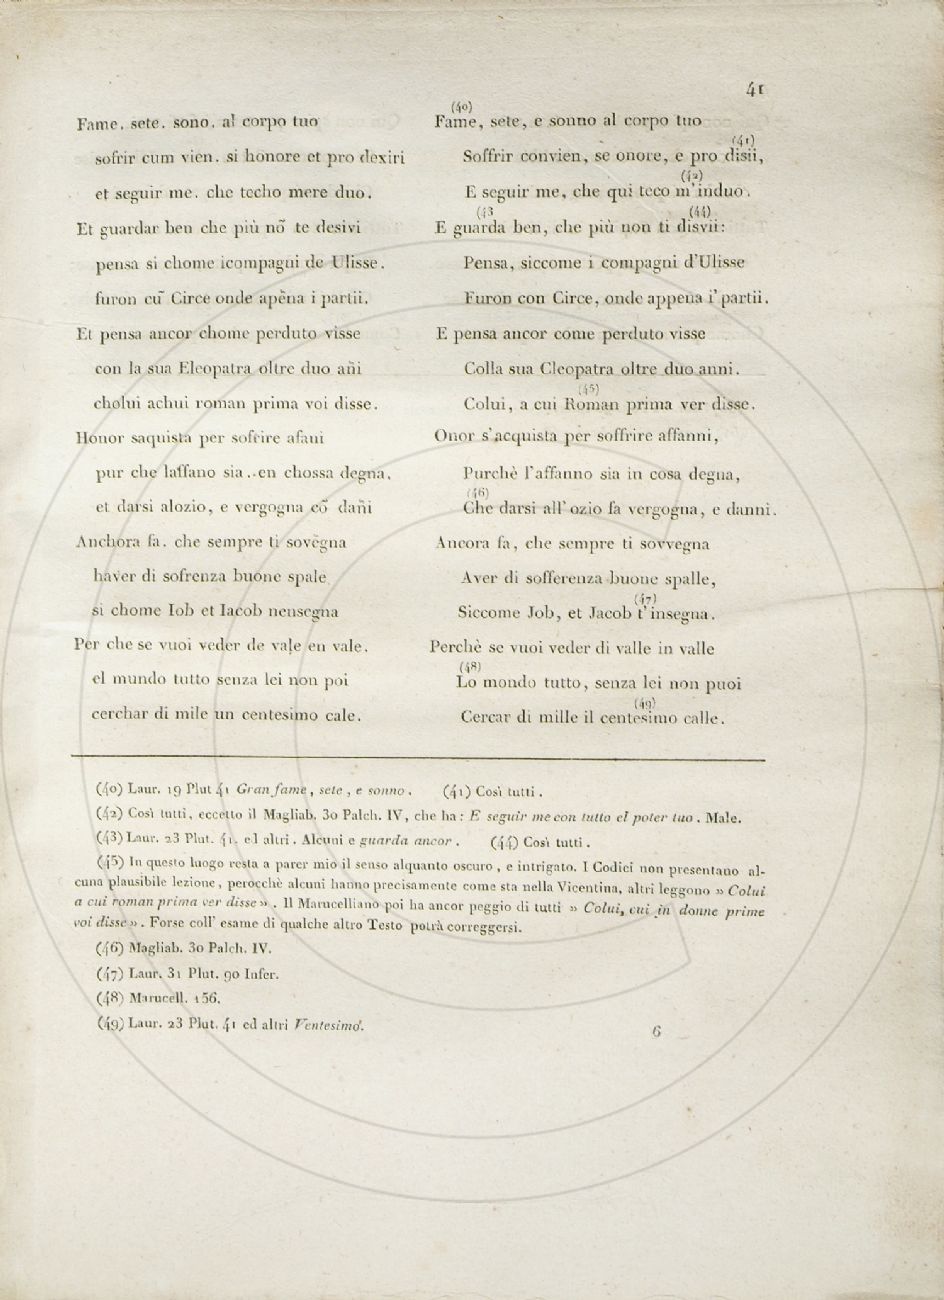 41
Fame. sete. sono. al corpo tuo
sofrir cum vien. si honore et pro dexiri
et seguir me. che techo mere duo.
Et guardar ben che più nõ te desivi
pensa si chome icompagni de Ulisse.
furon cũ Circe onde apẽna i partii.
Et pensa ancor chome perduto visse
con la sua Eleopatra oltre duo añi
cholui achui roman prima voi disse.
Honor saquista per soffrire afani
pur che laffano sia . . en chossa degna.
et darsi alozio, e vergogna cõ dañi
Anchora fa. che sempre ti sovẽgna
haver di sofrenza buone spale
si chome Iob et Iacob nensegna
Per che se vuoi veder de vale en vale.
el mundo tutto senza lei non poi
cerchar di mile un centesimo cale.
(40)
Fame, sete, e sonno al corpo tuo
(41)
Soffrir convien, se onore, e pro disii,
(42)
E seguir me, che qui teco m'induo.
(43 (44)
E guarda ben, che più non ti disvii:
Pensa, siccome i compagni d'Ulisse
Furon con Circe, onde appena i' partii.
E pensa ancor come perduto visse
Colla sua Cleopatra oltre duo anni.
(45)
Colui, a cui Roman prima ver disse.
Onor s'acquista per soffrire affanni,
Purchè l'affanno sia in cosa degna,
(46)
Che darsi all' ozio fa vergogna, e danni.
Ancora fa, che sempre ti sovvegna
Aver di sofferenza buone spalle,
(47)
Siccome Job, et Jacob t'insegna.
Perchè se vuoi veder di valle in valle
(48)
Lo mondo tutto, senza lei non puoi
(49)
Cercar di mille il centesimo calle.
(40) Laur. 19 Plut 41 Gran fame, sete, e sonno. (41) Così tutti.
(42) Così tutti, eccetto il Magliab. 30 Palch. IV, che ha: E seguir me con tutto el poter tuo. Male.
(43) Laur. 23 Plut. 41. ed altri. Alcuni e guarda ancor. (44) Così tutti.
(45) In questo luogo resta a parer mio il senso alquanto oscuro, e intrigato. I Codici non presentano al-
cuna plausibile lezione, perocchè alcuni hanno precisamente come sta nella Vicentina, altri leggono » Colui
a cui roman prima ver disse ». Il Marucelliano poi ha ancor peggio di tutti » Colui, cui in donne prime
voi disse ». Forse coll' esame di qualche altro Testo potrà correggersi.
(46) Magliab. 30 Palch. IV.
(47) Laur. 31 Plut. 90 Infer.
(48) Marucell. 156.
(49) Laur. 23 Plut. 41 ed altri Ventesimo.
6